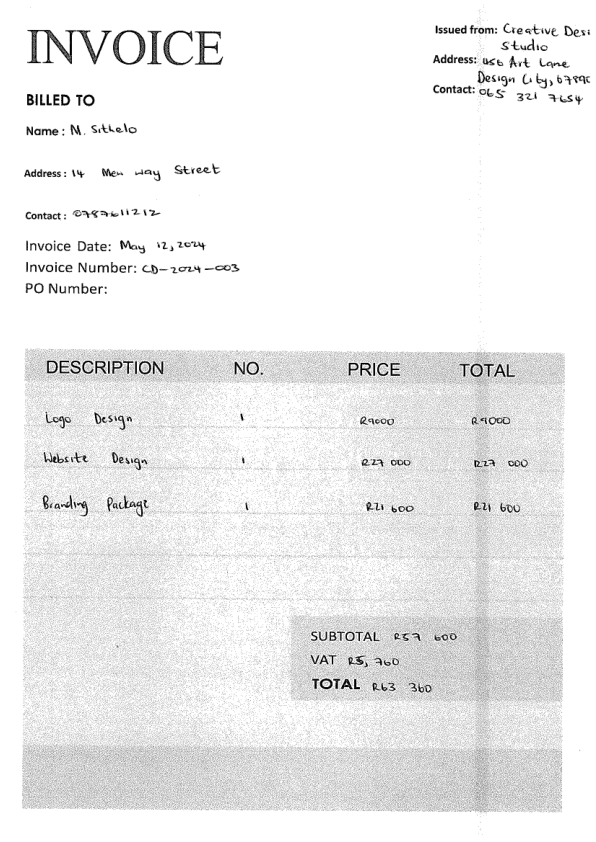 INVOICE
Issued from: Creative Desi
Studio
Address: 456 Art Lane
Design City, 6789
Contact: 065 321 7654
BILLED TO
Name : M. Sithelo
Address : 14 way Street
Contact : 0787611212
Invoice Date: May 12, 2024
Invoice Number: CD-2024-003
PO Number:
DESCRIPTION NO. PRICE TOTAL
Logo Design 1 R9000 R9000
Website Design 1 R27 000 R27 000
Branding Package 1 R21 600 R21 600
SUBTOTAL R57 600
VAT R5, 760
TOTAL R63 360